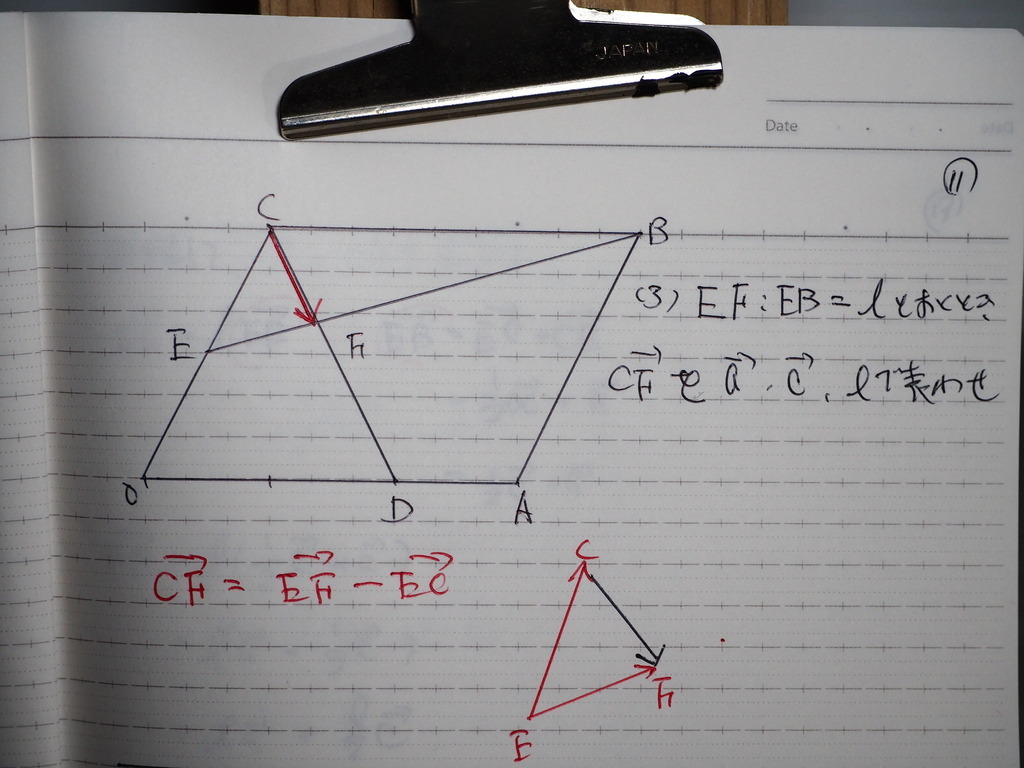 JAPAN
Date
⑪
C
B
E
F
(3) EF:EB=lとおくとき
CF→をa→.c→,lで表わせ
O
D
A
CF→ = EF→ − EC→
C
F
E